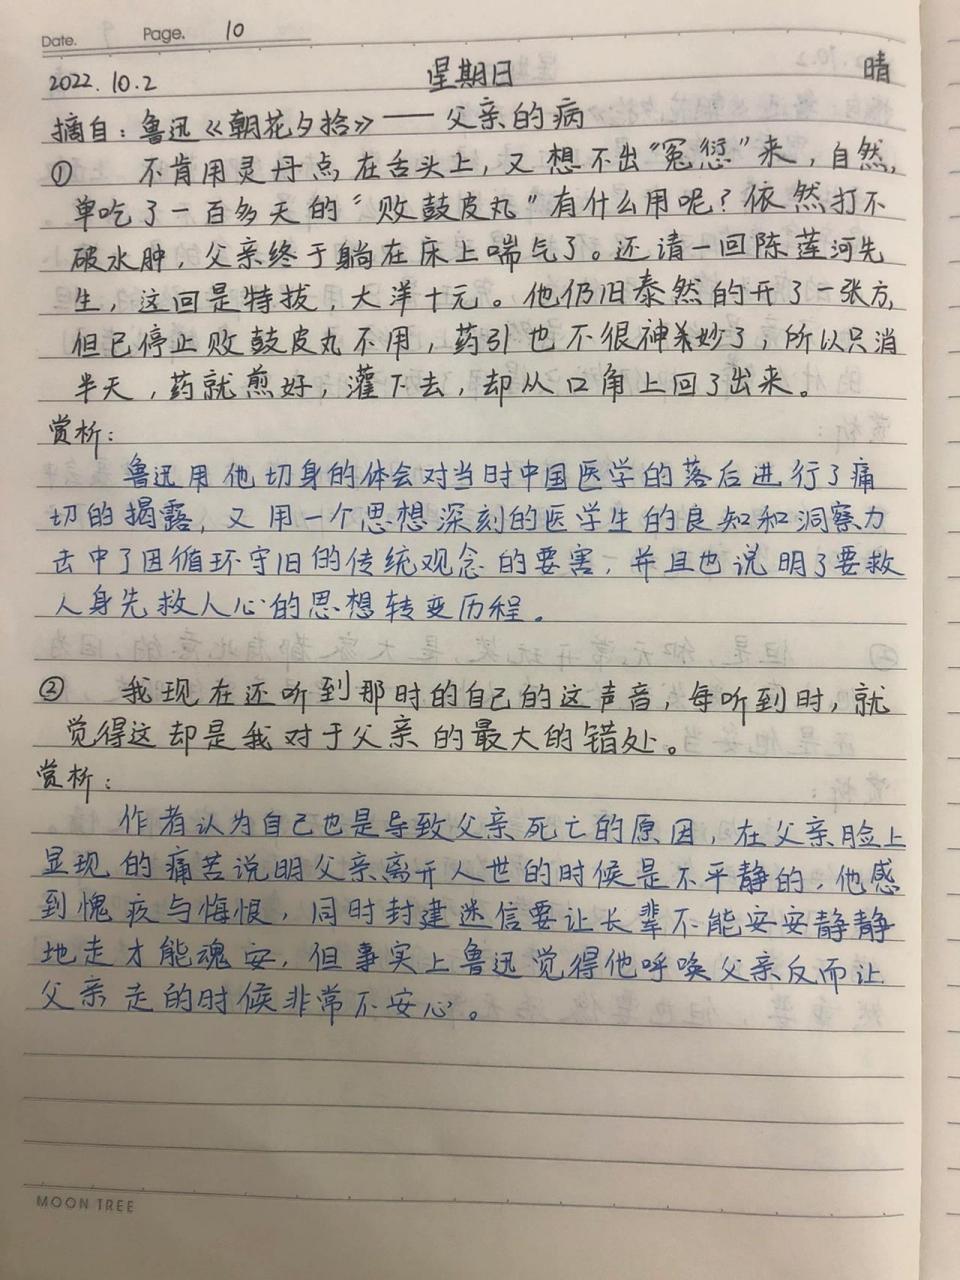 Date. Page. 10
2022.10.2 星期日 晴
摘自：鲁迅《朝花夕拾》——父亲的病
① 不肯用灵丹点在舌头上，又想不出“冤愆”来，自然，
单吃了一百多天的“败鼓皮丸”有什么用呢？依然打不
破水肿，父亲终于躺在床上喘气了。还请一回陈莲河先
生，这回是特拔，大洋十元。他仍旧泰然的开了一张方，
但已停止败鼓皮丸不用，药引也不很神妙了，所以只消
半天，药就煎好，灌下去，却从口角上回了出来。
赏析：
鲁迅用他切身的体会对当时中国医学的落后进行了痛
切的揭露，又用一个思想深刻的医学生的良知和洞察力
去中了因循环守旧的传统观念的要害，并且也说明了要救
人身先救人心的思想转变历程。
② 我现在还听到那时的自己的这声音，每听到时，就
觉得这却是我对于父亲的最大的错处。
赏析：
作者认为自己也是导致父亲死亡的原因，在父亲脸上
显现的痛苦说明父亲离开人世的时候是不平静的，他感
到愧疚与悔恨，同时封建迷信要让长辈不能安安静静
地走才能魂安，但事实上鲁迅觉得他呼唤父亲反而让
父亲走的时候非常不安心。
MOON TREE